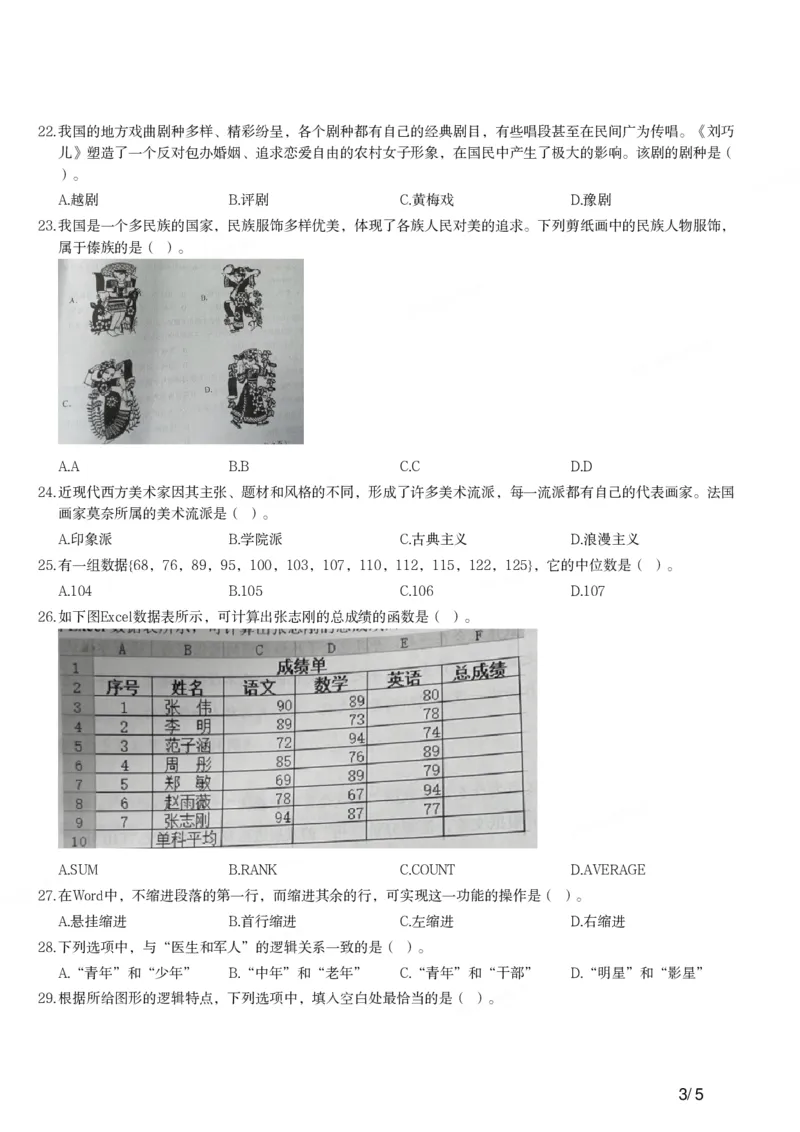 22.我国的地方戏曲剧种多样、精彩纷呈，各个剧种都有自己的经典剧目，有些唱段甚至在民间广为传唱。《刘巧
儿》塑造了一个反对包办婚姻、追求恋爱自由的农村女子形象，在国民中产生了极大的影响。该剧的剧种是（
）。
A.越剧 B.评剧 C.黄梅戏 D.豫剧
23.我国是一个多民族的国家，民族服饰多样优美，体现了各族人民对美的追求。下列剪纸画中的民族人物服饰，
属于傣族的是（ ）。
A. B.
C. D.
A.A B.B C.C D.D
24.近现代西方美术家因其主张、题材和风格的不同，形成了许多美术流派，每一流派都有自己的代表画家。法国
画家莫奈所属的美术流派是（ ）。
A.印象派 B.学院派 C.古典主义 D.浪漫主义
25.有一组数据{68，76，89，95，100，103，107，110，112，115，122，125}，它的中位数是（ ）。
A.104 B.105 C.106 D.107
26.如下图Excel数据表所示，可计算出张志刚的总成绩的函数是（ ）。
A B C D E F
1 成绩单
2 序号 姓名 语文 数学 英语 总成绩
3 1 张 伟 90 89 80
4 2 李 明 89 73 78
5 3 范子涵 72 94 74
6 4 周 彤 85 76 89
7 5 郑 敏 69 89 79
8 6 赵雨薇 78 67 94
9 7 张志刚 94 87 77
10 单科平均
A.SUM B.RANK C.COUNT D.AVERAGE
27.在Word中，不缩进段落的第一行，而缩进其余的行，可实现这一功能的操作是（ ）。
A.悬挂缩进 B.首行缩进 C.左缩进 D.右缩进
28.下列选项中，与“医生和军人”的逻辑关系一致的是（ ）。
A.“青年”和“少年” B.“中年”和“老年” C.“青年”和“干部” D.“明星”和“影星”
29.根据所给图形的逻辑特点，下列选项中，填入空白处最恰当的是（ ）。
3/5